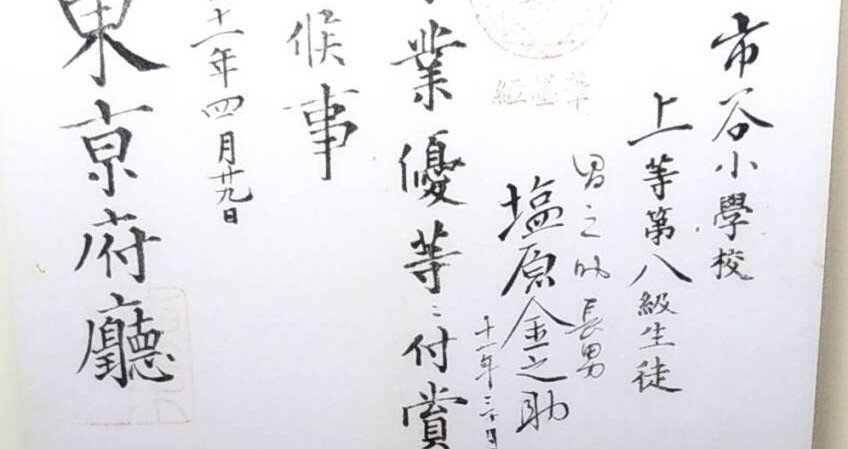 市谷小學校
上等第八級生徒
男之助長男
塩原金之助
十一年三ヶ月
業優等ニ付賞
候事
十一年四月廿九日
東京府廳